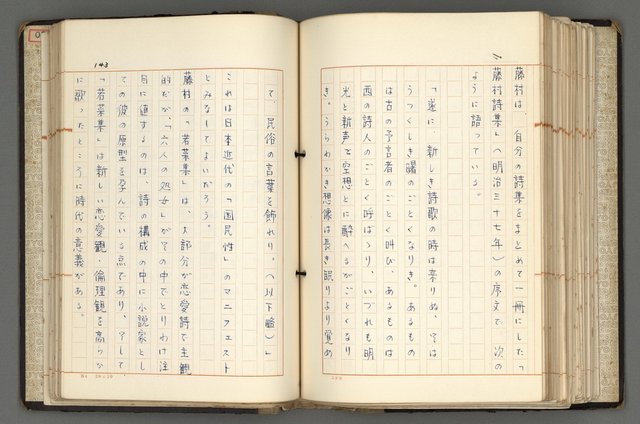 藤村は、自分の詩集をまとめて一冊にした「
藤村詩集」(明治三十七年)の序文で、次の
ように語っている。
「遂に、新しき詩歌の時は来りぬ。そは
うつくしき曙のごとくなりき。あるもの
は古の予言者のごとく叫び、あるものは
西の詩人のごとく呼ばゝり、いづれも明
光と新声と空想とに酔へるがごとくなり
き。うらわかき想像は長き眠りより覚め
143
て、民俗の言葉を飾れり。(以下略)」
これは日本近代の「国民性」のマニフェスト
とみなしてよいだろう。
藤村の「若菜集」は、大部分が恋愛詩で主観
的だが、「六人の処女」がその中でとりわけ注
目に値するのは、詩の構成の中に小説家とし
ての彼の原型を孕んでいる点であり、そして
「若菜集」は新しい恋愛観・倫理観を高らか
に歌ったところに時代の意義がある。